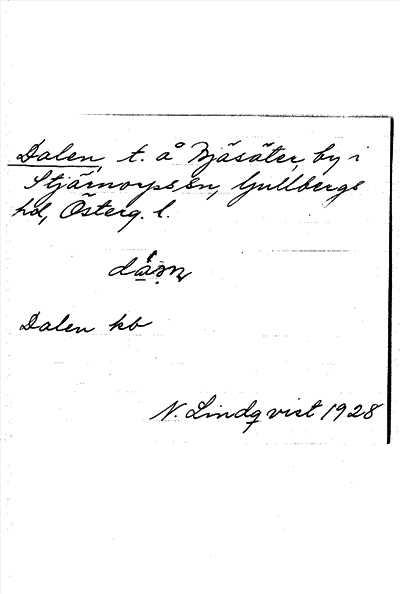 Dalen, t. å Bjäsäter, by i
Stjärnorps sn, Gullbergs
hd, Österg. l.
Dalen kb
N. Lindqvist 1928